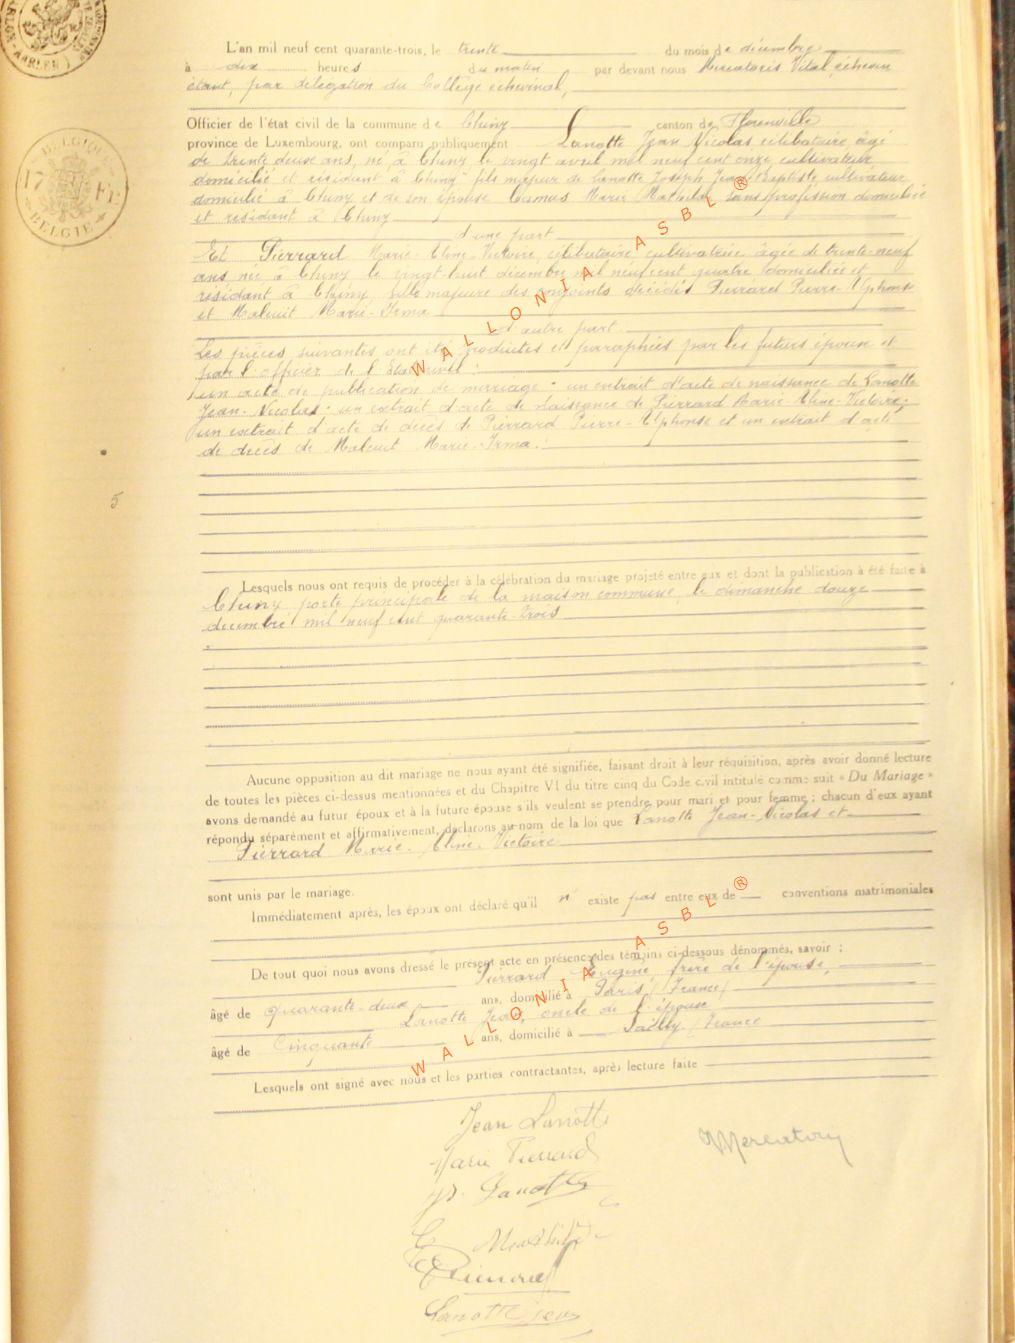 L'an mil neuf cent quarante-trois, le trente du mois de décembre
à dix heures du matin par devant nous Mercatoris Vital, échevin
étant, par délégation du Collège échevinal,
Officier de l'état civil de la commune de Chiny canton de Florenville
province de Luxembourg, ont comparu publiquement Lanotte Jean Nicolas célibataire âgé
de trente deux ans, né à Chiny le vingt avril mil neuf cent onze, cultivateur
domicilié et résidant à Chiny fils majeur de Lanotte Joseph Jean Baptiste cultivateur
domicilié à Chiny et de son épouse Camus Marie Mathilde sans profession domiciliée
et résidant à Chiny
d'une part
Et Pierrard Marie-Aline-Victoire, célibataire, cultivatrice âgée de trente-neuf
ans née à Chiny le vingt-huit décembre mil neuf cent quatre domiciliée et
résidant à Chiny, fille majeure des conjoints décédés Pierrard Pierre-Alphonse
et Maleuit Marie-Irma
d'autre part
Les pièces suivantes ont été produites et paraphées par les futurs époux et
par l'officier de l'Etat civil :
un acte de publication de mariage - un extrait d'acte de naissance de Lanotte
Jean-Nicolas - un extrait d'acte de naissance de Pierrard Marie-Aline-Victoire,
un extrait d'acte de décès de Pierrard Pierre-Alphonse et un extrait d'acte
de décès de Maleuit Marie-Irma.
5
Lesquels nous ont requis de procéder à la célébration du mariage projeté entre eux et dont la publication a été faite à
Chiny porte principale de la maison commune, le dimanche douze
décembre mil neuf cent quarante-trois
Aucune opposition au dit mariage ne nous ayant été signifiée, faisant droit à leur réquisition, après avoir donné lecture
de toutes les pièces ci-dessus mentionnées et du Chapitre VI du titre cinq du Code civil intitulé comme suit « Du Mariage »
avons demandé au futur époux et à la future épouse s'ils veulent se prendre pour mari et pour femme ; chacun d'eux ayant
répondu séparément et affirmativement, déclarons au nom de la loi que Lanotte Jean-Nicolas et
Pierrard Marie-Aline-Victoire
sont unis par le mariage.
Immédiatement après, les époux ont déclaré qu'il n' existe pas entre eux de conventions matrimoniales
De tout quoi nous avons dressé le présent acte en présence des témoins ci-dessous dénommés, savoir :
Pierrard Eugène frère de l'épouse,
âgé de quarante-deux ans, domicilié à Paris (France)
Lanotte Jean, oncle de l'épouse
âgé de Cinquante ans, domicilié à Sailly (France
Lesquels ont signé avec nous et les parties contractantes, après lecture faite
Jean Lanotte
Marie Pierrard
Lanotte
Pierrard
Lanotte Jean
BELGIQUE
17 FR
BELGIE
WALLONIA ASBL ®
WALLONIA ASBL ®